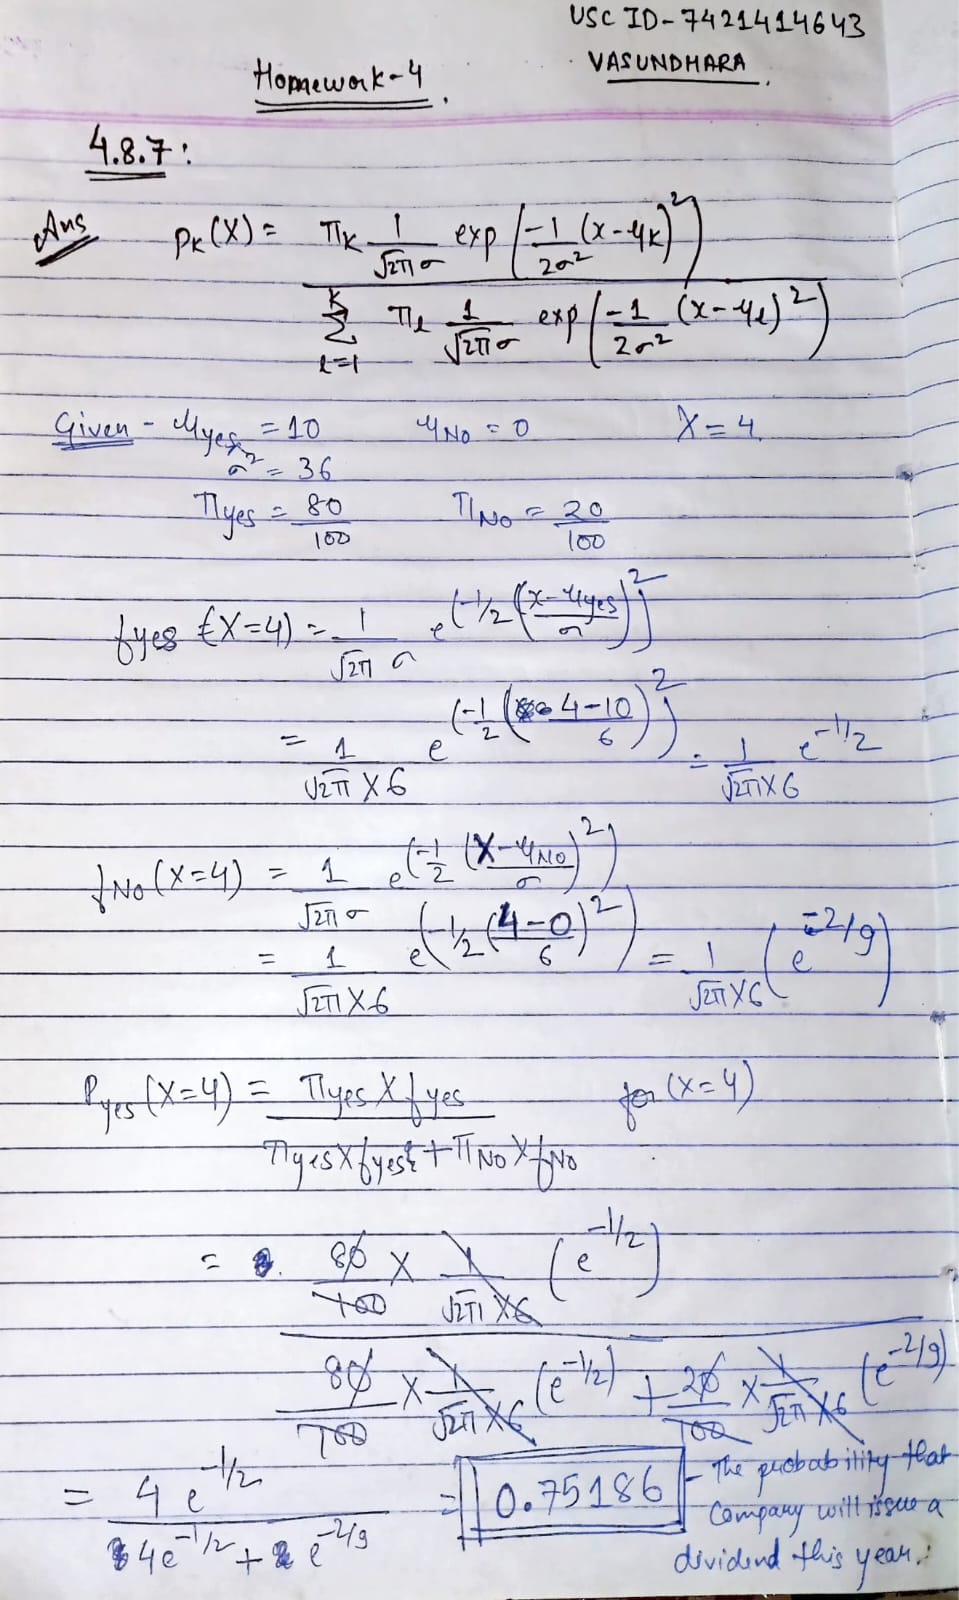 USC ID-7421414643
VASUNDHARA
Homework-4
4.8.7:
Ans pk(X) = πk 1/√2π σ exp(-1/2σ² (x-μk)²)
K Σ l=1 πl 1/√2π σ exp(-1/2σ² (x-μl)²)
Given - μyes = 10 μNO = 0 X = 4
σ² = 36
πyes = 80/100 πNO = 20/100
fyes (X=4) = 1/√2π σ e^(-1/2 ((x-μyes)/σ)²)
= 1/√2π X6 e^(-1/2 ((4-10)/6)²) = 1/√2πX6 e^-1/2
fNO(X=4) = 1/√2π σ e^(-1/2 ((X-μNO)/σ)²)
= 1/√2π X6 e^(-1/2 ((4-0)/6)²) = 1/√2πX6 (e^-2/9)
Pyes (X=4) = πyes X fyes for (X=4)
πyes X fyes + πNO X fNO
= 80/100 X 1/√2π X6 (e^-1/2)
80/100 X 1/√2π X6 (e^-1/2) + 20/100 X 1/√2π X6 (e^-2/9)
= 4 e^-1/2 = 0.75186 - The probability that
4e^-1/2 + e^-2/9 Company will issue a
dividend this year.